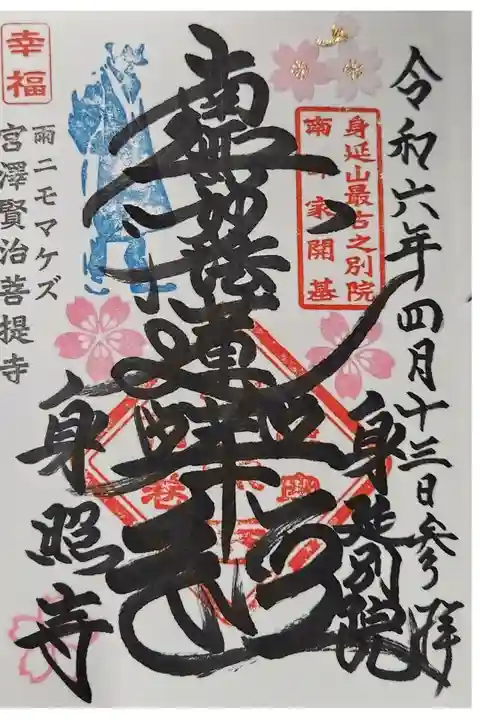 令和六年四月十三日参拝
身延山最古之別院
南部家開基
身延別院
南無妙法蓮華経
幸福
雨ニモマケズ
宮澤賢治菩提寺
身照寺